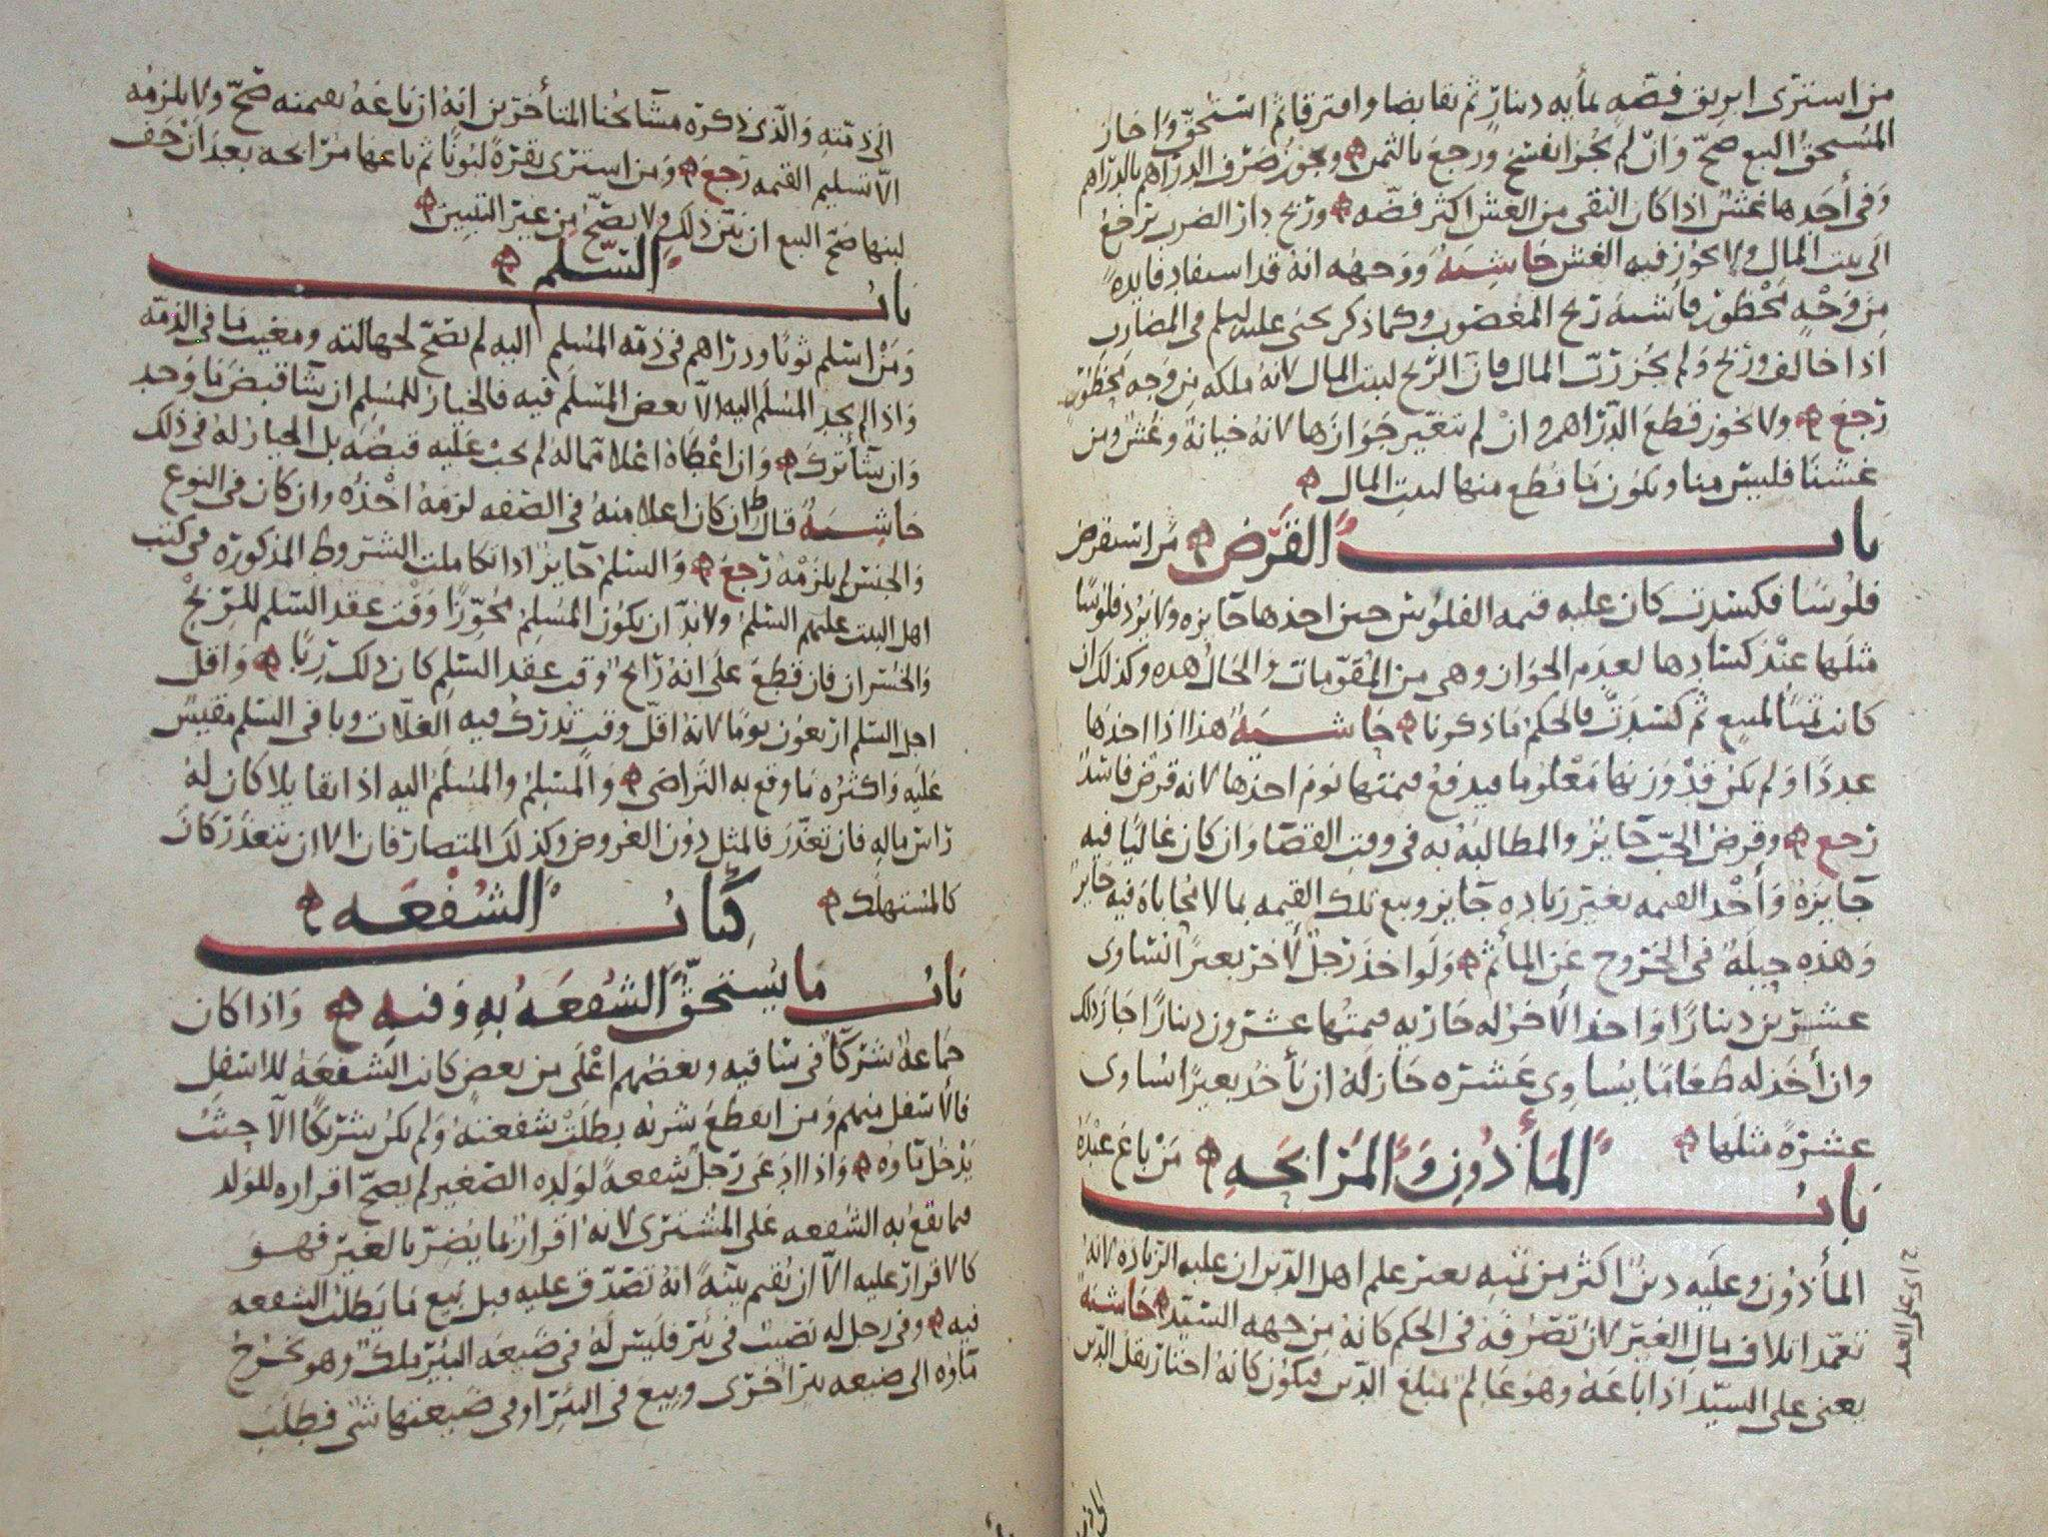 من اشترى ابريق فضة بمأية دينار ثم تقابضا وافترقا ثم استحق واجاز
المستحق البيع صح وان لم يجز انفسخ ورجع بالثمن ويجوز صرف الدراهم بالدراهم
وفى أحدها غش اذا كان النقى من الغش اكثر فضه وربح دار الضرب ترجع
الى بيت المال ولا يجوز فيه الغش حاشية ووجهه انه قد استفاد فايدة
من وجه محظور فأشبه ربح المغصوب وكما ذكر يحيى عليلم فى المضارب
اذا خالف وربح ولم يجز رب المال فان الربح لبيت المال لانه ملكه من وجه محظور
رجع ولا يجوز قطع الدراهم وان لم تتغير جوازها لانه خيانة وغش ومن
غشنا فليس منا ويكون ما قطع منها لبيت المال
باب القرض من استقرض
فلوسا فكسدت كان عليه قيمه الفلوس حين اخذها جايزه ولا يرد فلوسا
مثلها عند كسادها لعدم الجواز وهى من المقومات والحال هذه وكذلك ان
كانت ثمنا لمبيع ثم كسدت فالحكم ما ذكرنا حاشية هذا اذا اخذها
عددا ولم يكن قد وزنها معلوما فيدفع قيمتها يوم اخذها لانه قرض فاسد
رجع وقرض الحب جايز والمطالبه به فى وقت القضا وان كان غاليا فيه
جايزة وأخذ القيمه بغير زياده جايز وبيع تلك القيمه بما لا محاباة فيه جايز
وهذه حيلة فى الخروج عن المأثم ولو اخذ رجل لأخر بعيرا لساوى
عشرين دينارا واخذ الأخر له جاريه قيمتها عشرون دينارا جاز ذلك
وان أخذ له طعاما يساوى عشره جاز له ان يأخذ بعيرا يساوى
عشرة مثلها
باب المأذون والمرابحه من باع عبده
المأذون وعليه دين اكثر من ثمنه بغير علم اهل الدين ان عليه الزياده لانه
تعمد اتلاف مال الغير لان تصرفه فى الحكم كانه من جهه السيد حاشية
يعنى على السيد اذا باعه وهو عالم بمبلغ الدين فيكون كانه اختار نقل الدين
الى ذمته والذى ذكره مشآئخنا المتأخرين انه ان باعه بقيمته صح ولا يلزمه
الا تسليم القيمه رجع ومن اشترى بقرة لبونا ثم باعها مرابحه بعد ان جف
لبنها صح البيع ان بين ذلك ولا يصح من غير التبيين
باب السلم
ومن اسلم ثوبا ودراهم فى ذمه المسلم اليه لم يصح لجهالته ومغيب ما فى الذمه
واذا لم يجد المسلم اليه الا بعض المسلم فيه فالخيار للمسلم ان شآ قبض ما وجد
وان شآ ترك وان اعطاه اعلا مما له لم يجب عليه قبضه بل الخيار له فى ذلك
حاشية قال ان كان اعلا منه فى الصفه لزمه اخذه وان كان فى النوع
والجنس لم يلزمه رجع والسلم جايز اذا تكاملت الشروط المذكوره فى كتب
اهل البيت عليهم السلم ولا بد ان يكون المسلم مجوزا وقت عقد السلم للربح
والخسران فان قطع على انه رابح وقت عقد السلم كان ذلك ربا واقل
اجل السلم اربعون يوما لانه اقل وقت تدرك فيه الغلات وباقى السلم مقيس
عليه واكثره ما وقع به التراضى والمسلم والمسلم اليه اذا تقايلا كان له
راس ماله فان تعذر فالمثل دون العروض وكذلك المتصارفان الا ان يتعذر كان
كالمستهلك
كتاب الشفعه
باب ما يستحق الشفعه به وفيه واذا كان
جماعة شركآ فى ساقيه وبعضهم اعلى من بعض كانت الشفعه للاسفل
فالأسفل منهم ومن انقطع شربه بطلت شفعته ولم يكن شريكا الا حيث
يدخل مآوه واذا ادعى رجل شفعة لولده الصغير لم يصح اقراره للولد
فيما يقع به الشفعه على المشترى لانه اقرار بما يضر بالغير فهو
كالاقرار عليه الا ان يقيم بينة انه تصدق عليه قبل بيع ما يطلب الشفعه
فيه وفى رجل له نصيب فى بئر فليس له فى ضيعه البئر ملك وهو يخرج
مآوه الى ضيعه بئر اخرى وبيع فى البئر او فى ضيعتها شى فطلب